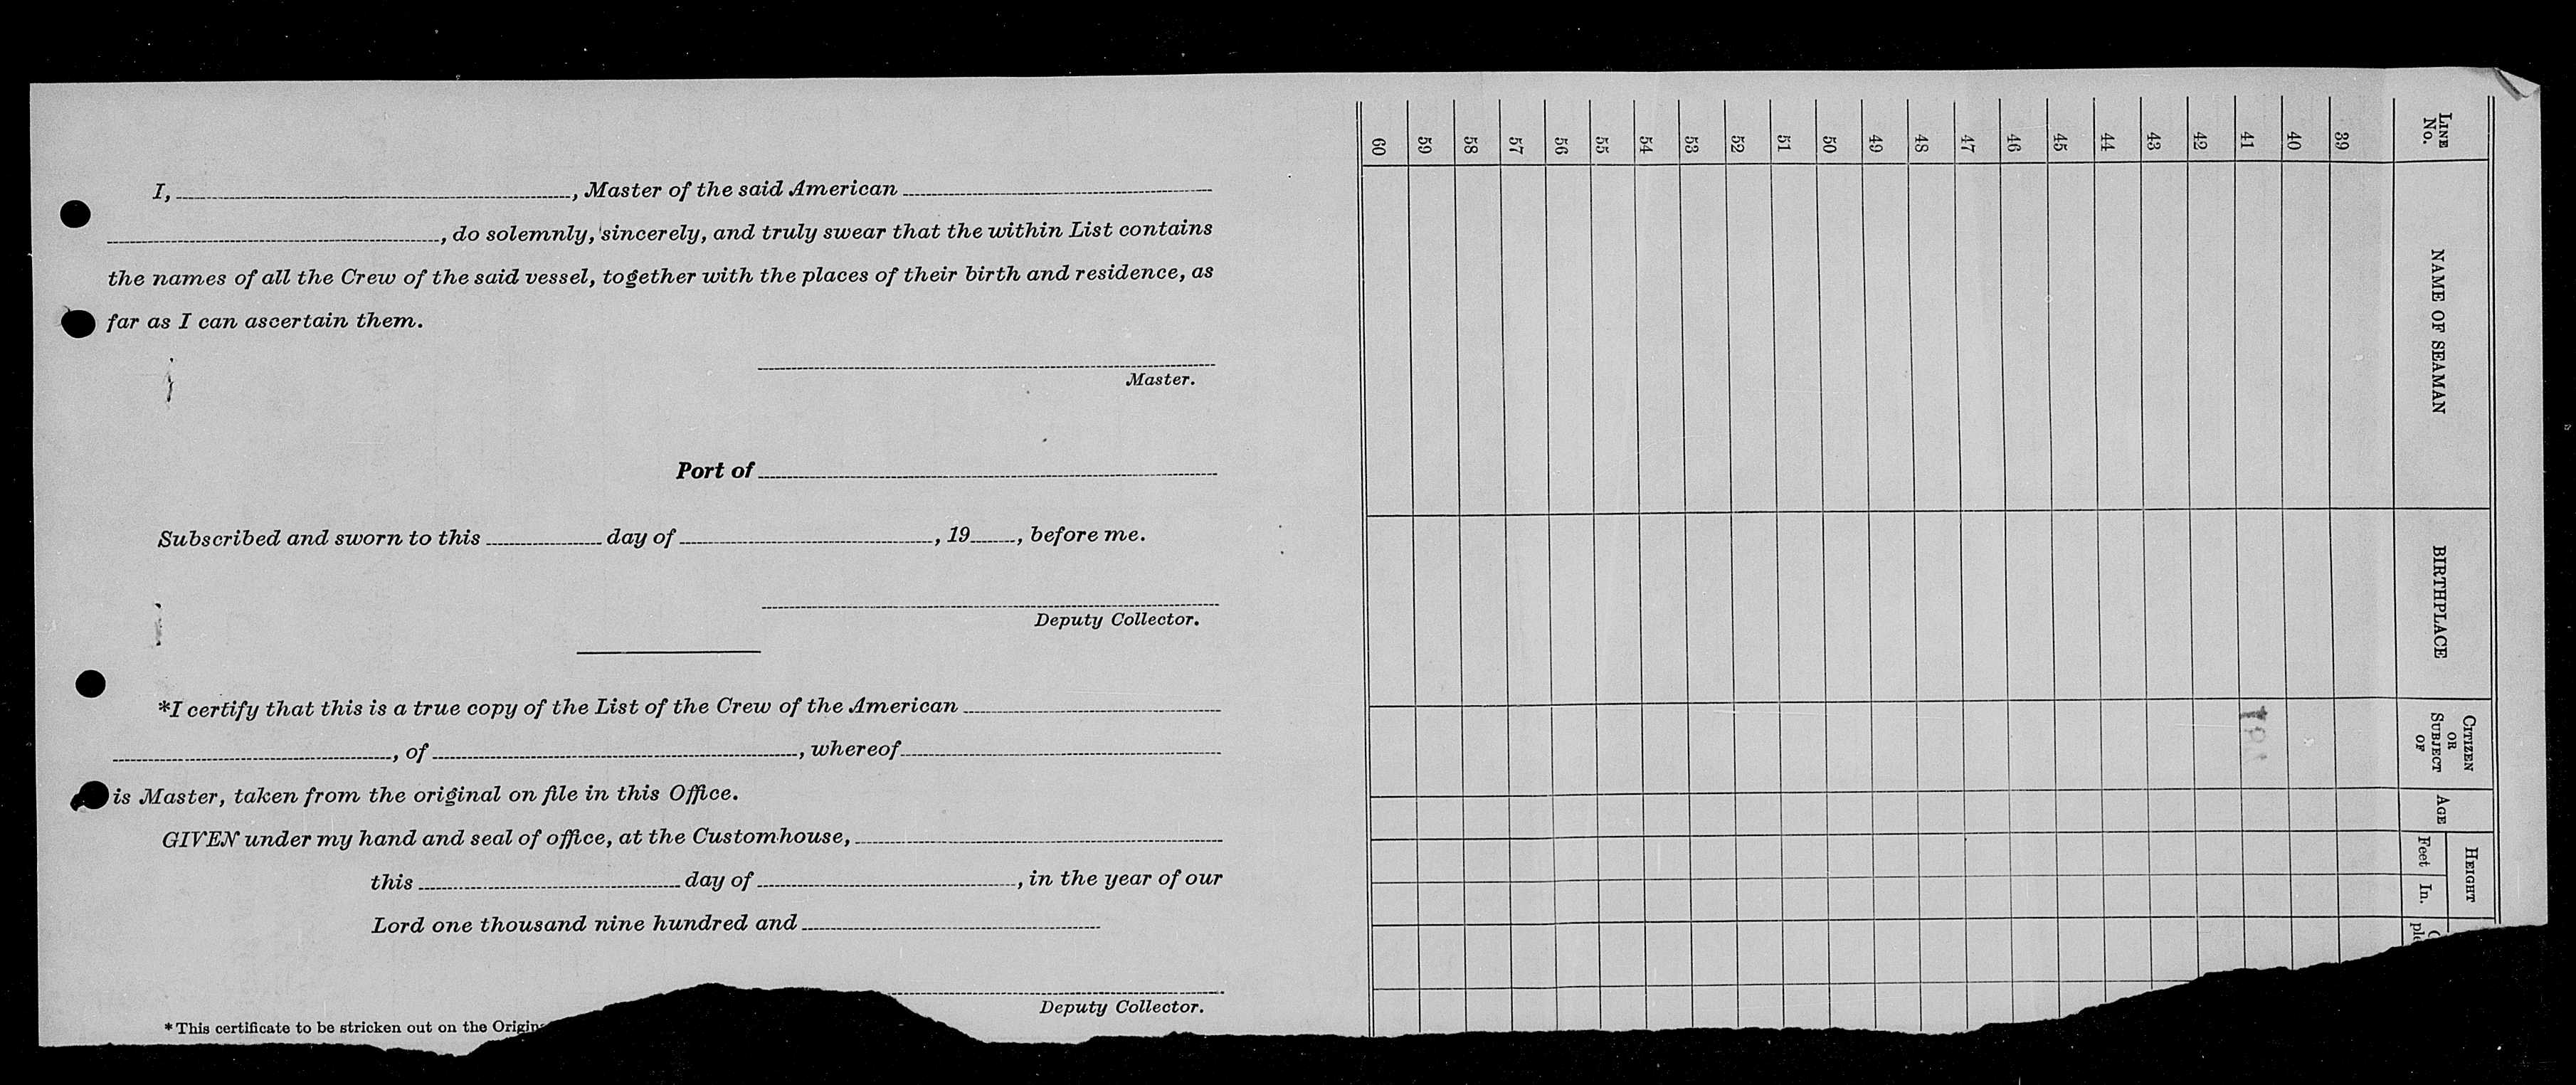 I, , Master of the said American
, do solemnly, sincerely, and truly swear that the within List contains
the names of all the Crew of the said vessel, together with the places of their birth and residence, as
far as I can ascertain them.
Master.
Port of
Subscribed and sworn to this day of , 19 , before me.
Deputy Collector.
*I certify that this is a true copy of the List of the Crew of the American
, of , whereof
is Master, taken from the original on file in this Office.
GIVEN under my hand and seal of office, at the Customhouse,
this day of , in the year of our
Lord one thousand nine hundred and
Deputy Collector.
*This certificate to be stricken out on the
LINE No.
NAME OF SEAMAN
BIRTHPLACE
CITIZEN OR SUBJECT OF
AGE
HEIGHT
Feet
In.
39
40
41
42
43
44
45
46
47
48
49
50
51
52
53
54
55
56
57
58
59
60